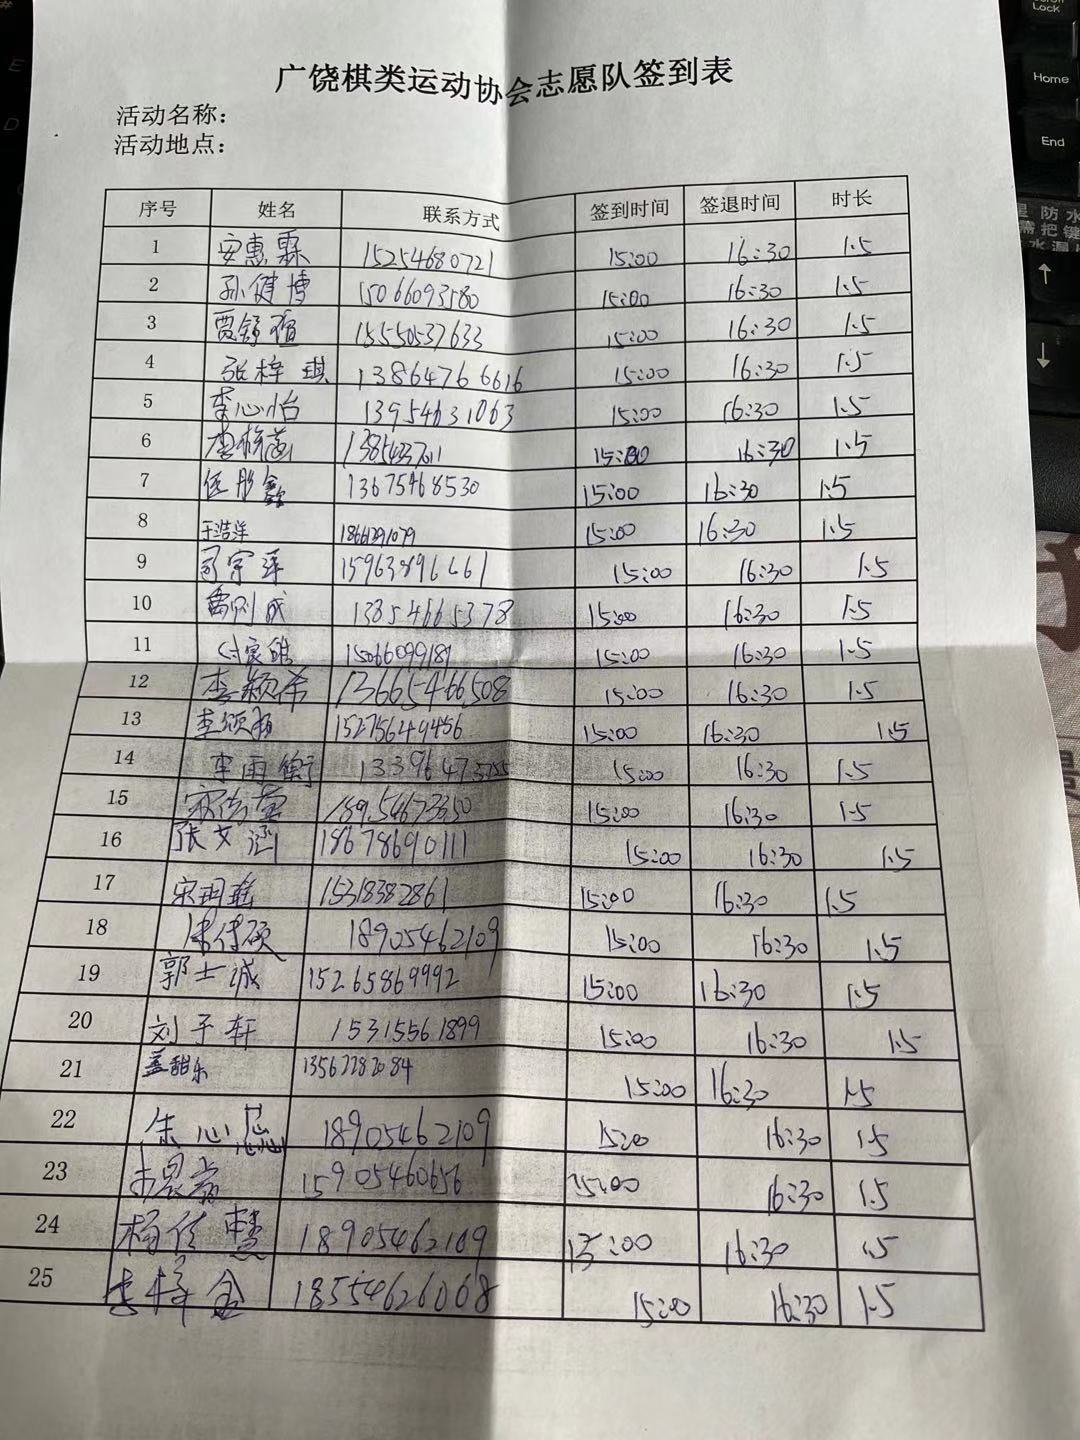 广饶棋类运动协会志愿队签到表
活动名称：
活动地点：
序号 姓名 联系方式 签到时间 签退时间 时长
1 安惠霖 15254680721 15:00 16:30 1.5
2 孙健博 15066093580 15:00 16:30 1.5
3 贾舒 15550537633 15:00 16:30 1.5
4 张梓琪 13864766616 15:00 16:30 1.5
5 李心怡 13954631063 15:00 16:30 1.5
6 李 15:00 16:30 1.5
7 任彤鑫 13675468530 15:00 16:30 1.5
8 王浩洋 18661391079 15:00 16:30 1.5
9 司宇泽 15963896661 15:00 16:30 1.5
10 成 13854665378 15:00 16:30 1.5
11 付家皓 15066099187 15:00 16:30 1.5
12 李颖希 13665466508 15:00 16:30 1.5
13 李颂扬 15275649456 15:00 16:30 1.5
14 李雨衡 13396473755 15:00 16:30 1.5
15 宋佳萱 18954673350 15:00 16:30 1.5
16 张文涵 18678690111 15:00 16:30 1.5
17 宋玥瑶 15318382861 15:00 16:30 1.5
18 硕 18905462109 15:00 16:30 1.5
19 郭士诚 15265869992 15:00 16:30 1.5
20 刘子轩 15315561899 15:00 16:30 1.5
21 盖甜乐 13562282084 15:00 16:30 1.5
22 朱心蕊 18905462109 15:00 16:30 1.5
23 15905460656 15:00 16:30 1.5
24 杨佳慧 18905462109 15:00 16:30 1.5
25 李梓金 18554626068 15:00 16:30 1.5
Scroll
Lock
Home
End